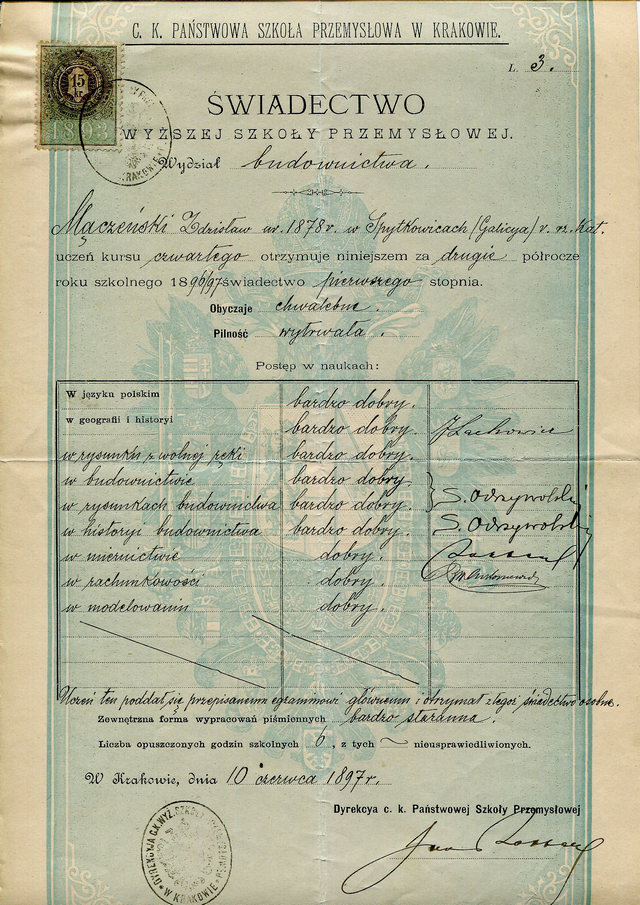 C. K. PAŃSTWOWA SZKOŁA PRZEMYSŁOWA W KRAKOWIE.
15
kr.
1893
L. 3.
ŚWIADECTWO
WYŻSZEJ SZKOŁY PRZEMYSŁOWEJ.
Wydział budownictwa.
Mączeński Zdzisław ur. 1878 r. w Spytkowicach (Galicya) r. rz. kat.
uczeń kursu czwartego otrzymuje niniejszem za drugie półrocze
roku szkolnego 1896/97 świadectwo pierwszego stopnia.
Obyczaje chwalebne.
Pilność wytrwała.
Postęp w naukach:
W języku polskim bardzo dobry.
w geografii i historyi bardzo dobry.
w rysunku z wolnej ręki bardzo dobry.
w budownictwie bardzo dobry.
w rysunkach budownictwa bardzo dobry. S. Odrzywolski
w historyi budownictwa bardzo dobry. S. Odrzywolski
w miernictwie dobry.
w rachunkowości dobry.
w modelowaniu dobry.
Uczeń ten poddał się przepisanemu egzaminowi głównemu i otrzymał z tegoż świadectwo osobne.
Zewnętrzna forma wypracowań piśmiennych bardzo staranna.
Liczba opuszczonych godzin szkolnych 6, z tych ~ nieusprawiedliwionych.
W Krakowie, dnia 10 czerwca 1897 r.
Dyrekcya c. k. Państwowej Szkoły Przemysłowej
DYREKCJA C.K. WYŻ. SZKOŁY
W KRAKOWIE